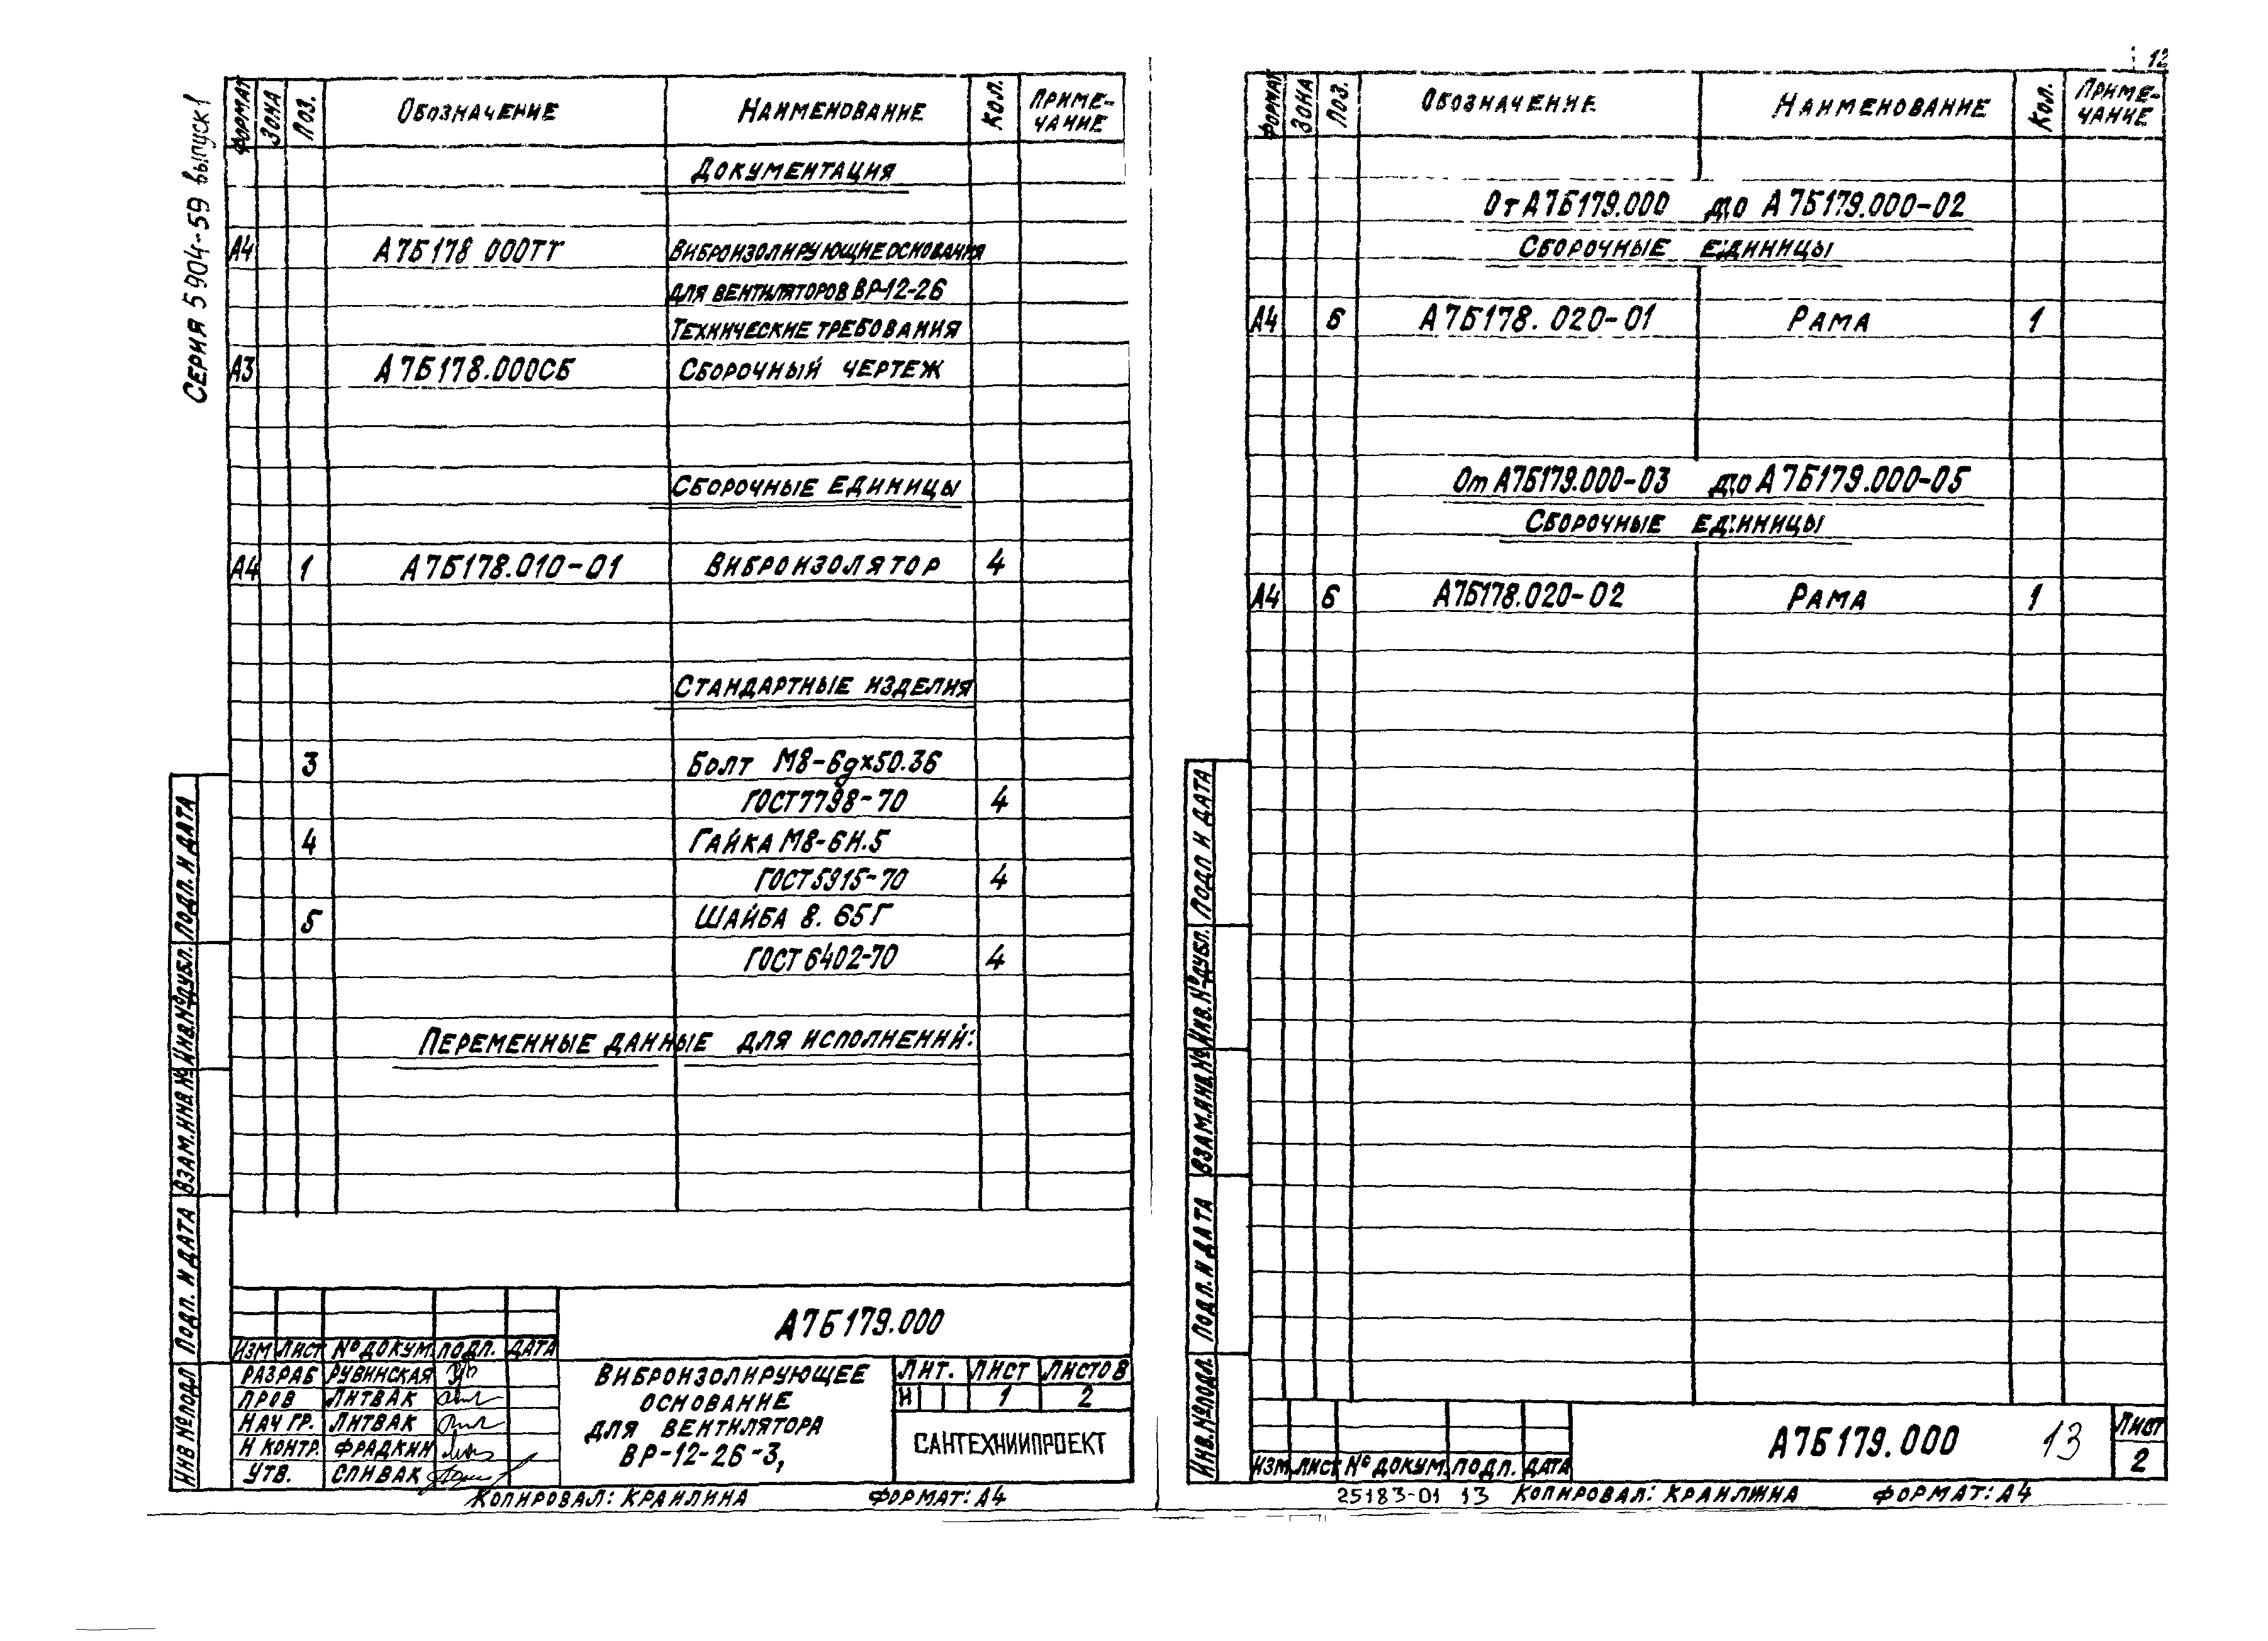 Серия 5904-59 выпуск 1
Формат Зона Поз. Обозначение Наименование Кол. Приме-
чание
Документация
А4 А7Б178 000ТТ Виброизолирующие основания
для вентиляторов ВР-12-26
Технические требования
А3 А7Б178.000СБ Сборочный чертеж
Сборочные единицы
А4 1 А7Б178.010-01 Виброизолятор 4
Стандартные изделия
3 Болт М8-6gх50.36
ГОСТ 7798-70 4
4 Гайка М8-6Н.5
ГОСТ 5915-70 4
5 Шайба 8. 65Г
ГОСТ 6402-70 4
Переменные данные для исполнений:
Инв № подл Подп. и дата Взам. инв. № Инв. № дубл. Подп. и дата
А7Б179.000
Изм Лист № докум. Подп. Дата
Разраб Рувинская
Пров Литвак
Нач гр. Литвак
Н контр. Фрадкин
Утв. Спивак
Виброизолирующее
основание
для вентилятора
ВР-12-26-3,
Лит. Лист Листов
И 1 2
САНТЕХНИИПРОЕКТ
Копировал: Краилина Формат: А4
12
Формат Зона Поз. Обозначение Наименование Кол. Приме-
чание
От А7Б179.000 до А7Б179.000-02
Сборочные единицы
А4 6 А7Б178.020-01 Рама 1
От А7Б179.000-03 до А7Б179.000-05
Сборочные единицы
А4 6 А7Б178.020-02 Рама 1
Инв. № подл. Подп. и дата Взам. инв. № Инв. № дубл. Подп и дата
Изм. Лист № докум. Подп. Дата
А7Б179.000 13
Лист
2
25183-01 13 Копировал: Краилина Формат: А4